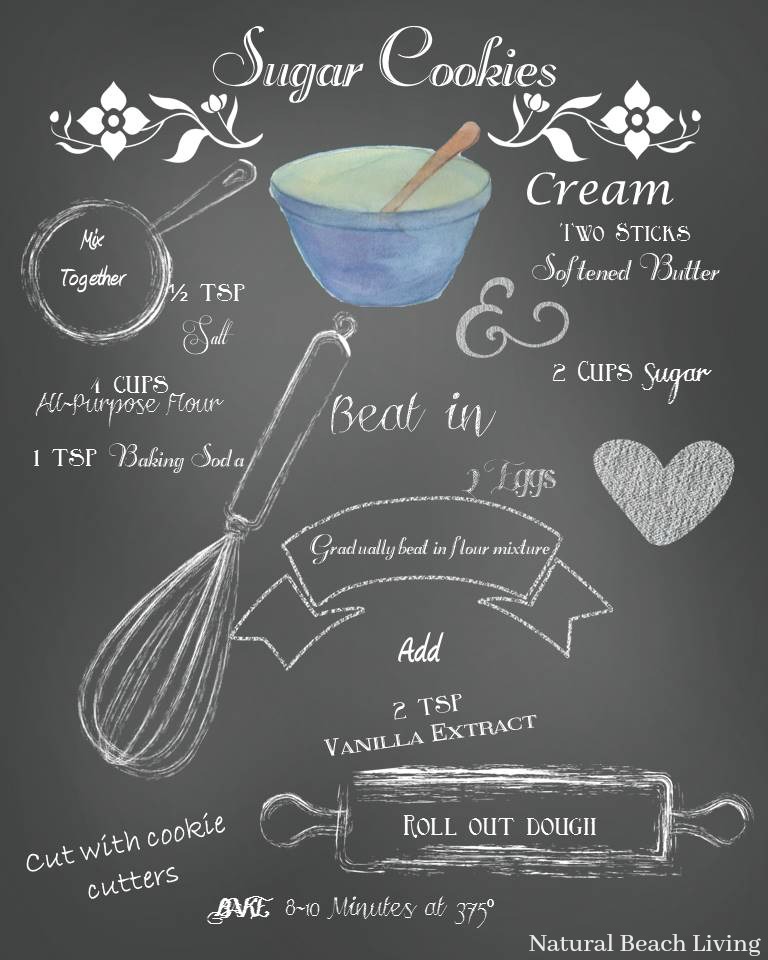 Sugar Cookies
Mix
Together
½ TSP
Salt
4 CUPS
All-Purpose Flour
1 TSP Baking Soda
Cream
Two Sticks
Softened Butter
&
2 CUPS Sugar
Beat in
Eggs
Gradually beat in flour mixture
Add
2 TSP
Vanilla Extract
Roll out dough
Cut with cookie
cutters
BAKE 8-10 Minutes at 375°
Natural Beach Living